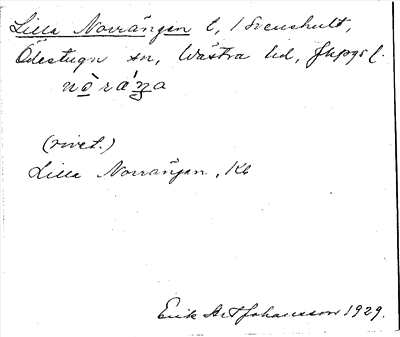 Lilla Norrängen t, /Svenshult,
Ödestugu sn, Västra hd, Jkpgs l.
nò̱rá̱ŋa
(rivet.)
Lilla Norrängen, Kb
Erik Art Johansson 1929.